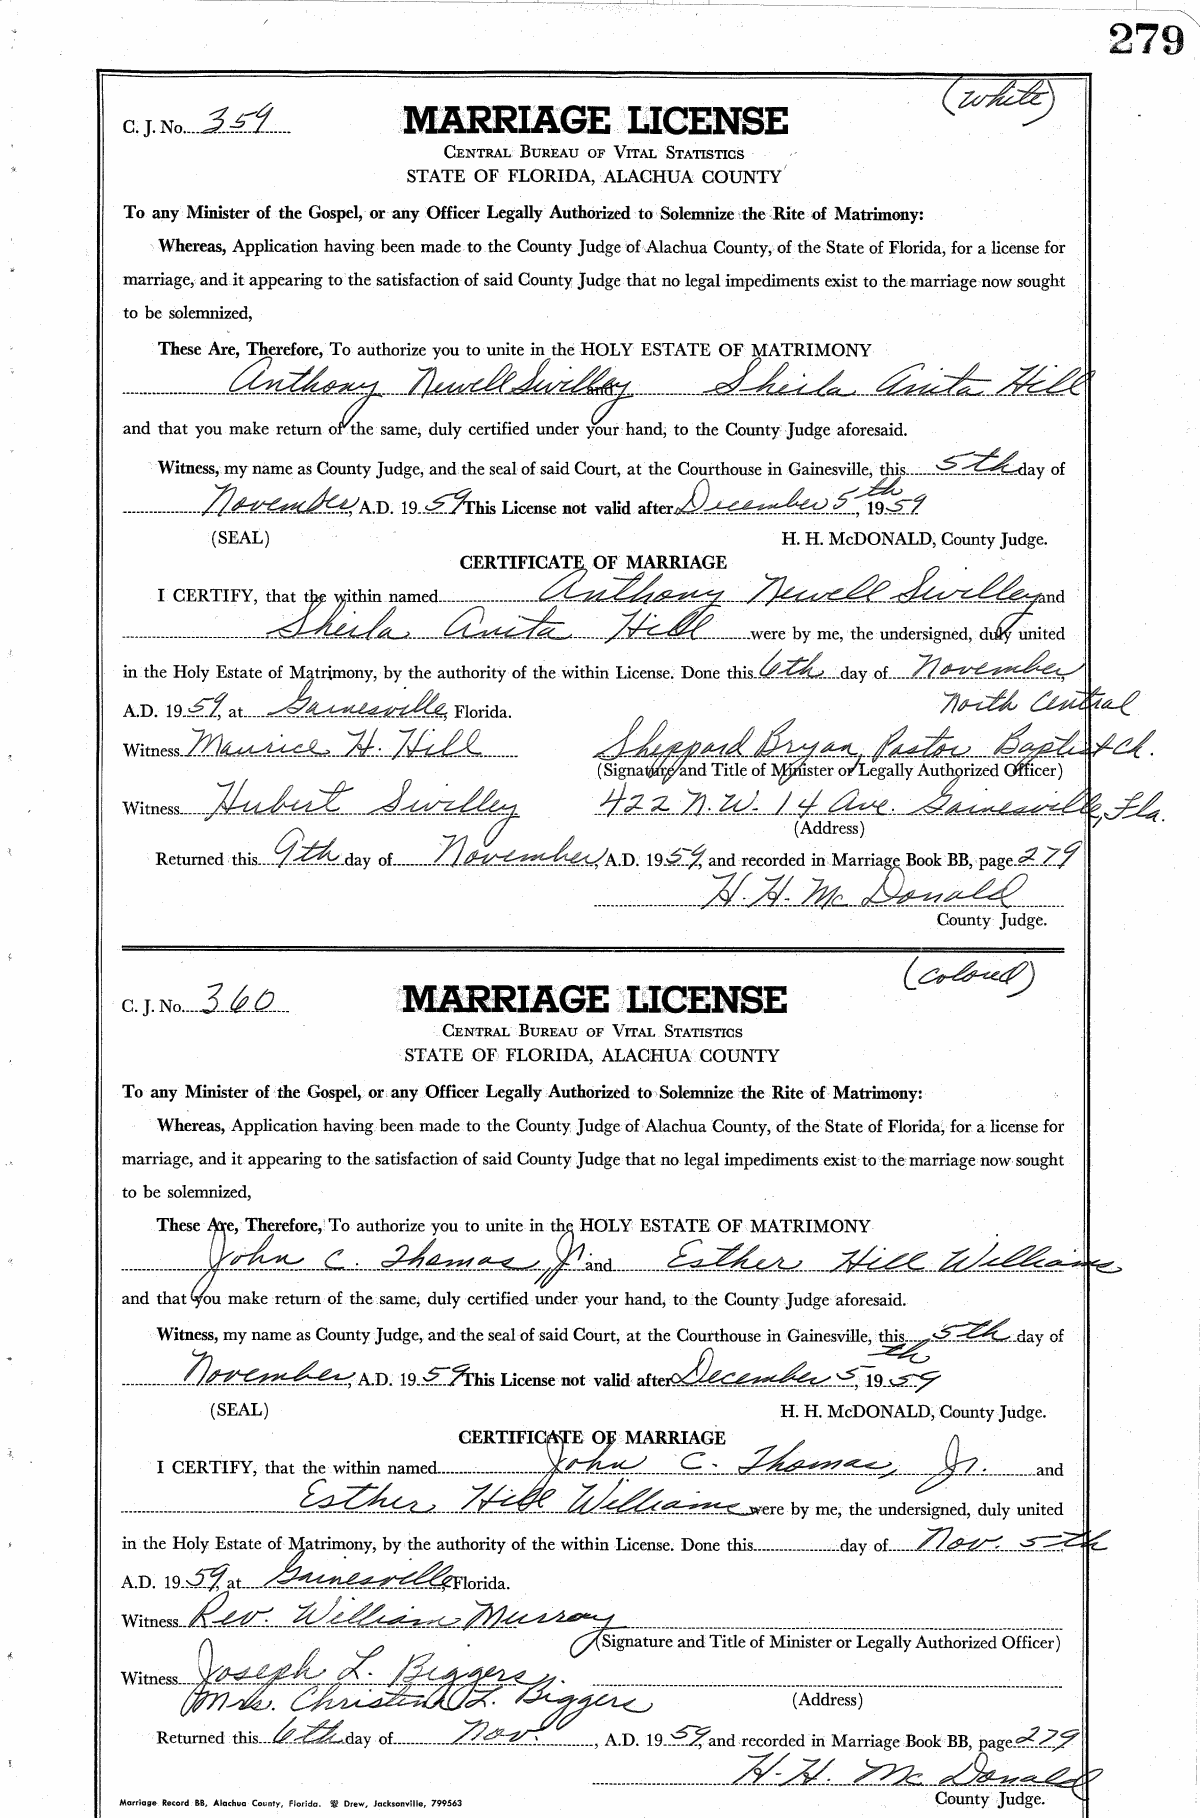 279
(white)
C. J. No. 359 MARRIAGE LICENSE
CENTRAL BUREAU OF VITAL STATISTICS
STATE OF FLORIDA, ALACHUA COUNTY
To any Minister of the Gospel, or any Officer Legally Authorized to Solemnize the Rite of Matrimony:
Whereas, Application having been made to the County Judge of Alachua County, of the State of Florida, for a license for
marriage, and it appearing to the satisfaction of said County Judge that no legal impediments exist to the marriage now sought
to be solemnized,
These Are, Therefore, To authorize you to unite in the HOLY ESTATE OF MATRIMONY
Anthony Newell Swilley and Sheila Anita Hill
and that you make return of the same, duly certified under your hand, to the County Judge aforesaid.
Witness, my name as County Judge, and the seal of said Court, at the Courthouse in Gainesville, this 5th day of
November, A.D. 1959 This License not valid after December 5th, 1959
(SEAL) H. H. McDONALD, County Judge.
CERTIFICATE OF MARRIAGE
I CERTIFY, that the within named Anthony Newell Swilley and
Sheila Anita Hill were by me, the undersigned, duly united
in the Holy Estate of Matrimony, by the authority of the within License. Done this 6th day of November,
A.D. 1959, at Gainesville, Florida. North Central
Witness Maurice H. Hill Sheppard Bryan, Pastor Baptist Ch.
(Signature and Title of Minister or Legally Authorized Officer)
Witness Hubert Swilley 422 N.W. 14 Ave. Gainesville, Fla.
(Address)
Returned this 9th day of November, A.D. 1959, and recorded in Marriage Book BB, page 279
H. H. McDonald
County Judge.
(colored)
C. J. No. 360 MARRIAGE LICENSE
CENTRAL BUREAU OF VITAL STATISTICS
STATE OF FLORIDA, ALACHUA COUNTY
To any Minister of the Gospel, or any Officer Legally Authorized to Solemnize the Rite of Matrimony:
Whereas, Application having been made to the County Judge of Alachua County, of the State of Florida, for a license for
marriage, and it appearing to the satisfaction of said County Judge that no legal impediments exist to the marriage now sought
to be solemnized,
These Are, Therefore, To authorize you to unite in the HOLY ESTATE OF MATRIMONY
John C. Thomas, Jr. and Esther Hill Williams
and that you make return of the same, duly certified under your hand, to the County Judge aforesaid.
Witness, my name as County Judge, and the seal of said Court, at the Courthouse in Gainesville, this 5th day of
November, A.D. 1959 This License not valid after December 5th, 1959
(SEAL) H. H. McDONALD, County Judge.
CERTIFICATE OF MARRIAGE
I CERTIFY, that the within named John C. Thomas, Jr. and
Esther Hill Williams were by me, the undersigned, duly united
in the Holy Estate of Matrimony, by the authority of the within License. Done this day of Nov. 5th
A.D. 1959, at Gainesville, Florida.
Witness Rev. William Murray
(Signature and Title of Minister or Legally Authorized Officer)
Witness Joseph L. Biggers
Mrs. Christena L. Biggers (Address)
Returned this 6th day of Nov., A.D. 1959, and recorded in Marriage Book BB, page 279
H. H. McDonald
County Judge.
Marriage Record BB, Alachua County, Florida. Drew, Jacksonville, 799563